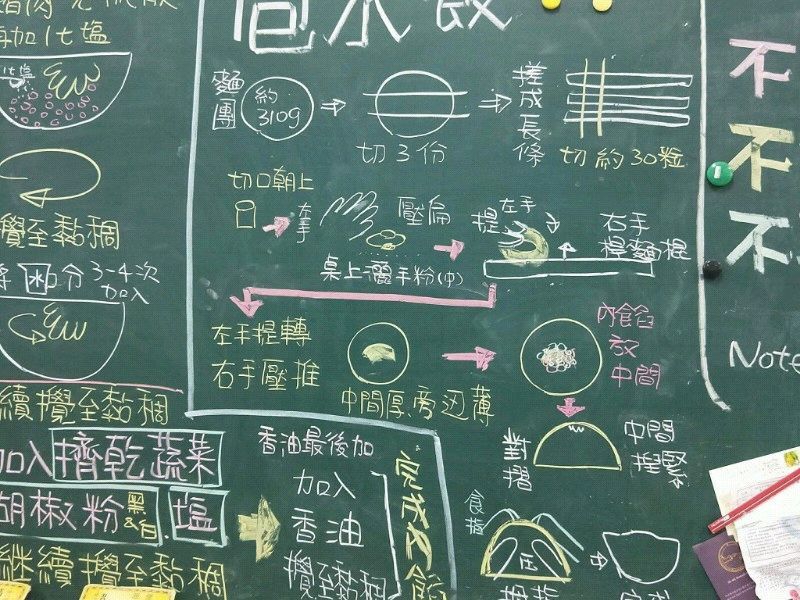 再加1t塩
1t塩
攪至黏稠
水分3-4次
加入
續攪至黏稠
加入擠乾蔬菜
胡椒粉
黑&白
塩
繼續攪至黏稠
包水餃
麵團
約
310g
切3份
搓成長條
切約30粒
切口朝上
左手
壓扁
桌上灑手粉(中)
左手
提
右手
桿麵棍
左手提轉
右手壓推
中間厚旁边薄
內餡
放
中間
對摺
中間
捏緊
食指
压
香油最後加
加入
香油
攪至黏稠
完成
餡
不
不
不
Note